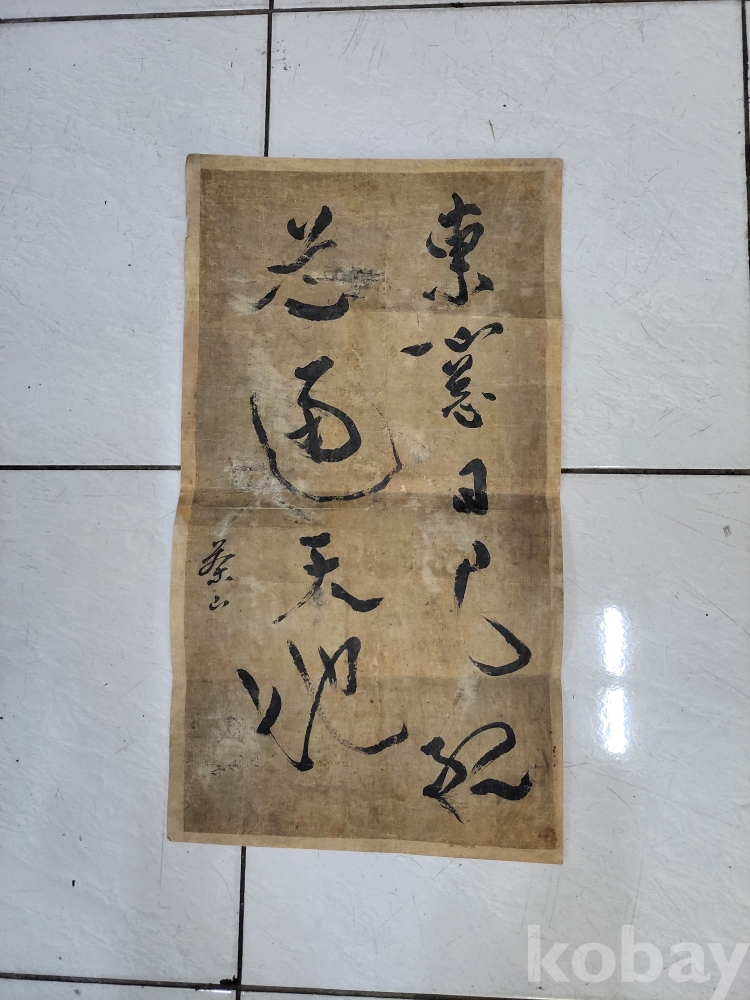 東窓日已紅
道通天地
茶山
kobay